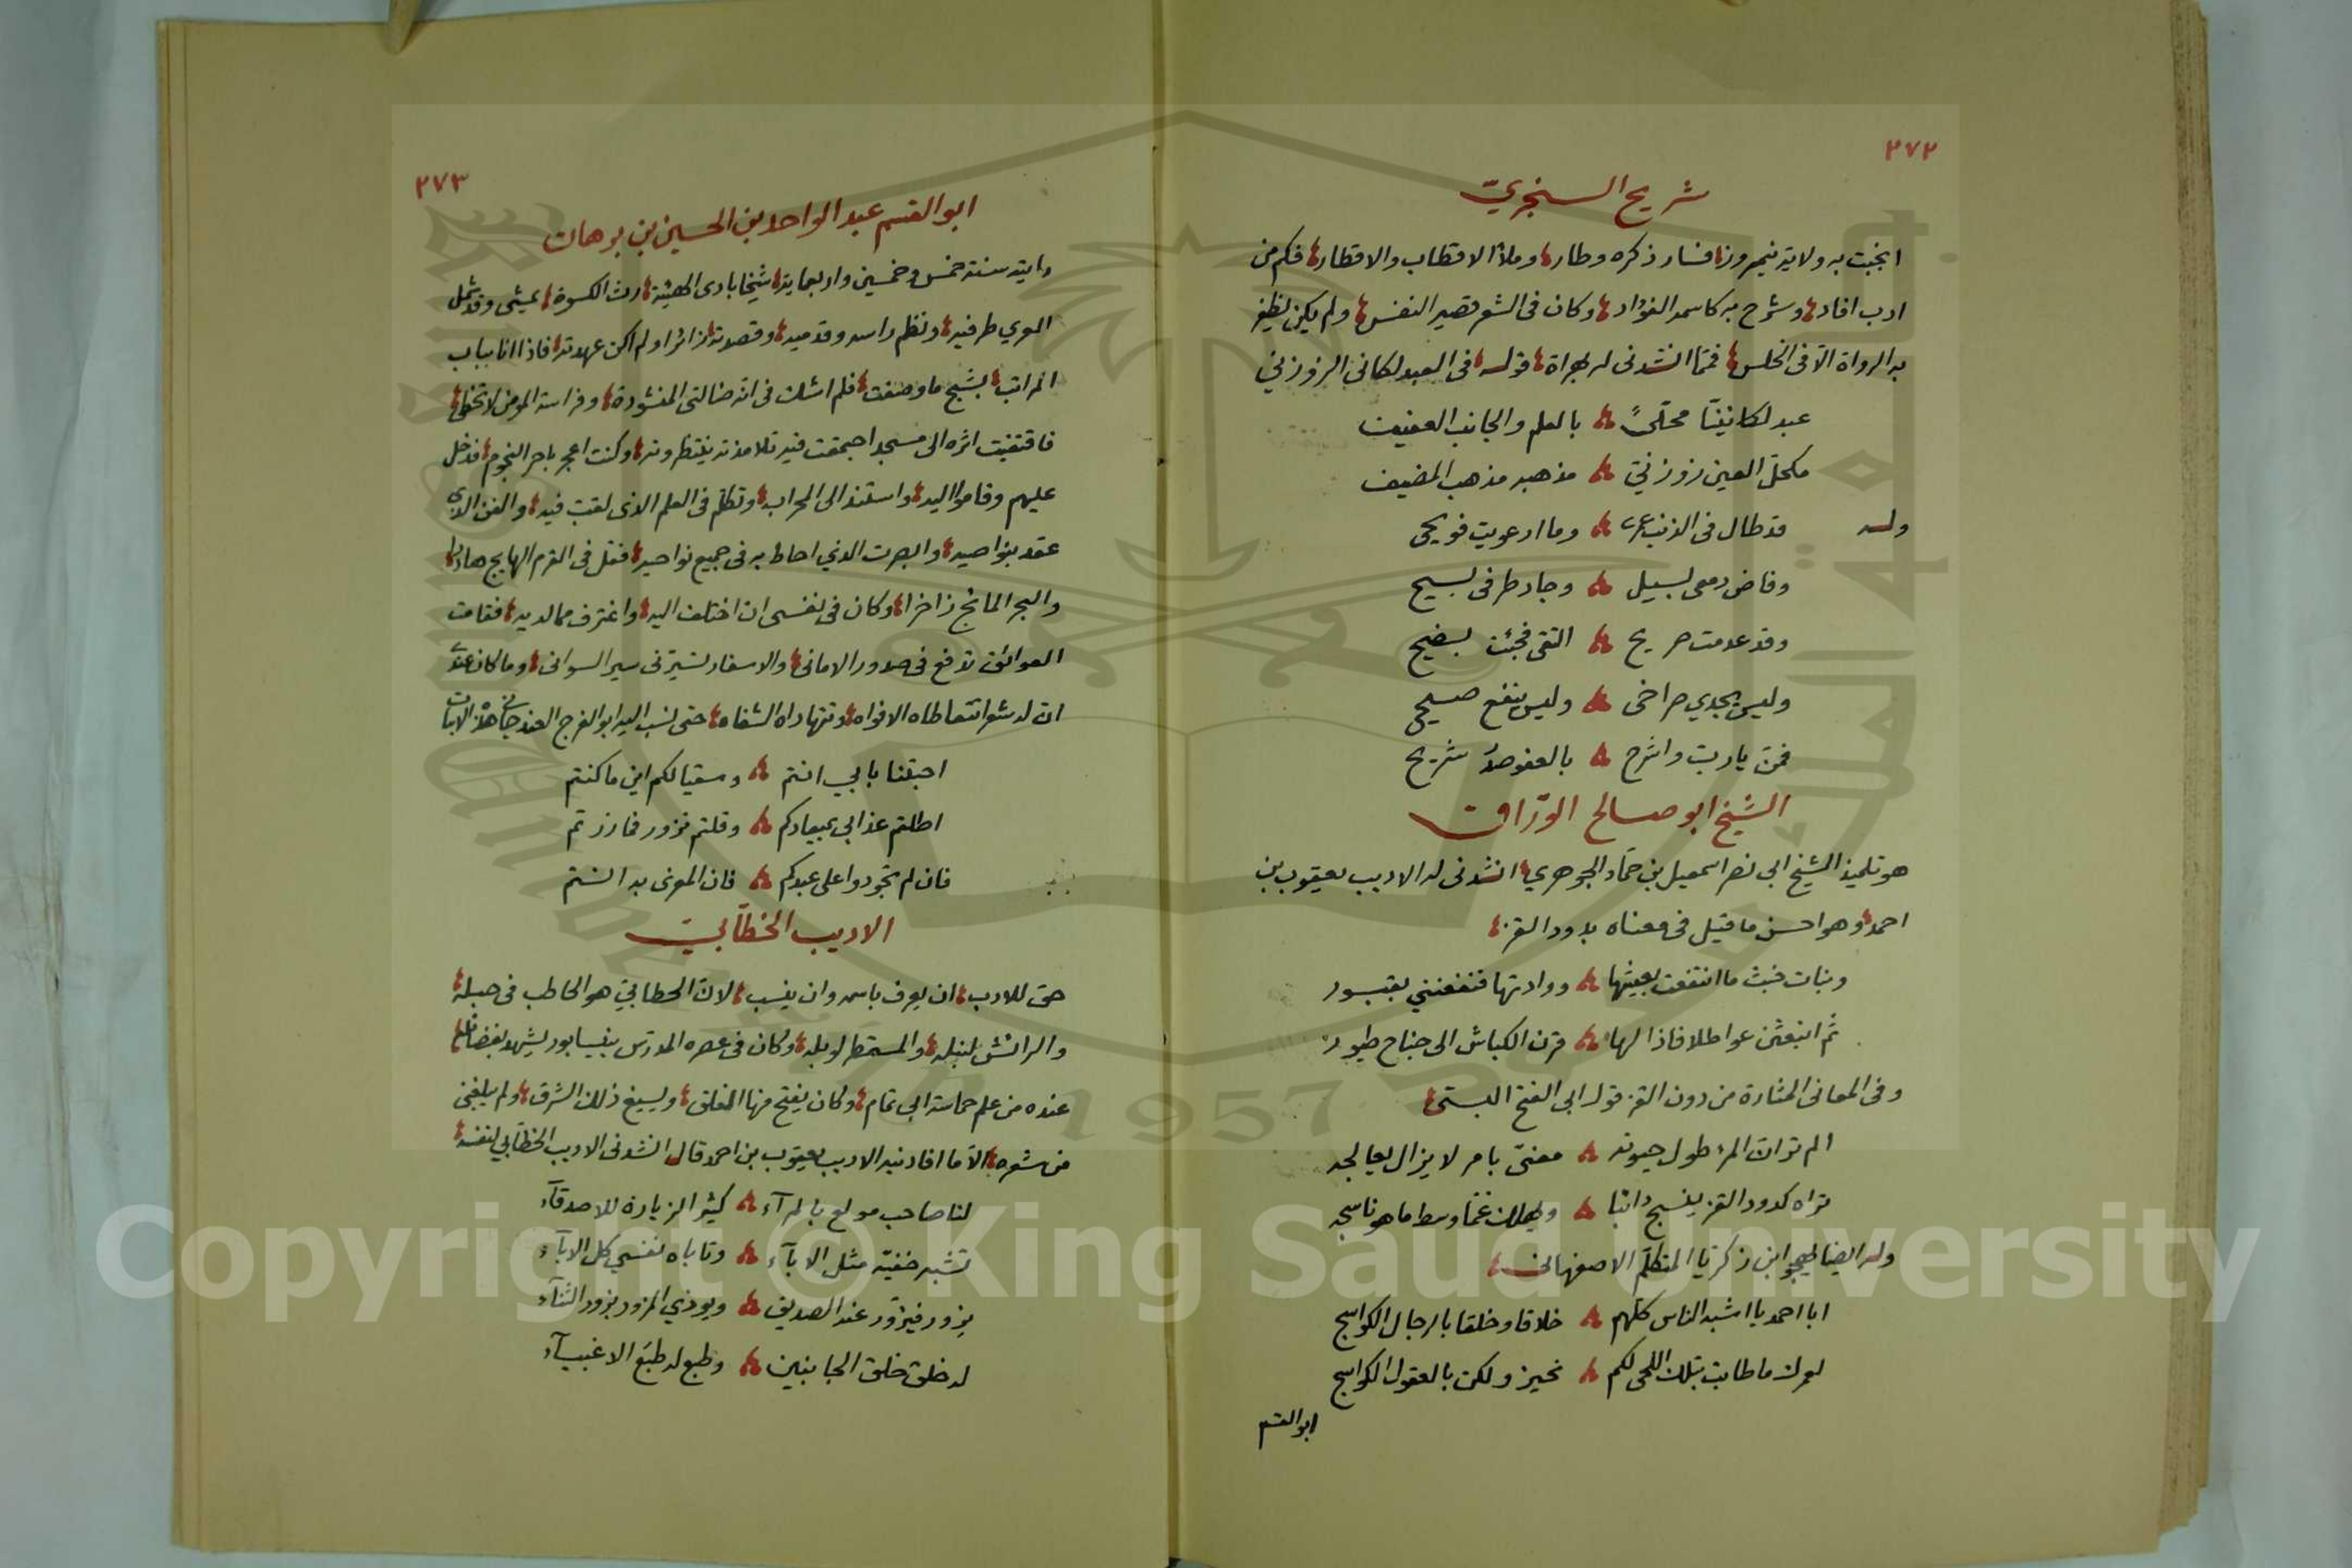 ٢٧٢
شريح السنجريّ
انجبت به ولاية نيمروز فسار ذكره وطار وملأ الاقطاب والاقطار فكم من
ادب افاد وشرح به كاسمه الفؤاد وكان فى الشعر قصير النفس ولم يكن يظفر
به الرواة الّا فى الخلس فممّا انشدنى له بهراة قوله فى العبدلكاني الزوزني
عبدلكانينّا محلّىً بالعلم والجانب العفيف
مكحل العين زوزنيّ مذهبه مذهب المضيف
وله قد طال فى الذنب عمرى وما ارعويت فويحى
وفاض دمعى بسيل وجاد طرفى بسيح
وقد عدمت صريح التقى فجئت بضيح
وليس يجدي صراخى وليس ينفع صيحى
فمنّ يارب واشرح بالعفو صدر شريح
الشيخ ابو صالح الورّاق
هو تلميذ الشيخ ابي نصر اسمعيل بن حمّاد الجوهري انشدنى له الاديب يعقوب بن
احمد وهو احسن ما قيل فى معناه بدود القز
وبنات خبث ما انتفعت بعيشها ووادتها فنفعنني بقبور
ثم انبعثن عواطلا فاذا لها قرن الكباش الى جناح طيور
وفى المعانى المثارة من دون القز قول ابى الفتح البستى
الم تر انّ المرء طول حيوته معنىّ بامر لا يزال يعالجه
تراه كدود القز ينسج دائبا ويهلك غمّا وسط ما هو ناسجه
وله ايضا يهجو ابن زكريّا المتكلّم الاصفهانى
ابا احمد يا اشبه الناس كلّهم خلاقا وخلقا بالرجال الكواسج
لعمرك ما طابت بتلك اللحى لكم نحيز ولكن بالعقول الكواسج
ابو القسم
٢٧٣
ابو القسم عبد الواحد بن الحسين بن برهان
رايته سنة خمس وخمسين واربعماية شيخا بادى الهيئة رث الكسوة يمشى وقد شمل
العري طرفيه ونظم راسه وقدميه وقصدته زائرا ولم اكن عهدته فاذا انا بباب
المراتب بشيخ ما وصفت فلم اشك فى انّه ضالتى المنشودة وفراسة المؤمن لا تخطئ
فاقتفيت اثره الى مسجد اجتمعت فيه تلامذته ينتظرونه وكنت اعجر باجر النجوم فدخل
عليهم وقاموا اليه واستند الى المحراب وتكلّم فى العلم الذى لقب فيه والفن الذي
عقد بنواصيه وابصرت الذي احاط به فى جميع نواحيه فقل فى القرم الهايج هادرا
والبحر المائج زاخرا وكان فى نفسى ان اختلف اليه واغترف مما لديه فقامت
العوائق تدفع فى صدور الامانى والاسفار تسيّرنى سير السوانى وما كان عندى
ان له شعرا تتعاطاه الافواه وتتهاداه الشفاه حتى نسب اليه ابو الفرج الغندجانى هذه الابيات
احبتنا بابي انتم وسقيا لكم اين ما كنتم
اطلتم عذابي بميعادكم وقلتم نزور فما زرتم
فان لم تجودوا على عبدكم فان المعزى به انتم
الاديب الخطّابيّ
حق للادب ان يعرف باسمه وان ينسب لانّ الخطابيّ هو الحاطب فى حبله
والرائش لنبله والمستمطر لوبله وكان فى عصره المدرّس بنيسابور يشهد بفضائله
عنده من علم حماسة ابي تمام وكان يفتح منها المغلق ويسيغ ذلك الشرق ولم يبلغنى
من شعره الّا ما افادنيه الاديب يعقوب بن احمد قال انشدنى الاديب الخطّابي لنفسه
لنا صاحب مولع بالمرآء كثير الزيارة للاصدقآء
تشبه خفيّة مثل الابآء وتاباه نفسي كل الابآء
يزور فيزوّر عند الصديق ويوذي المزور بزور الثنآء
له خلق خلق الجانبين وطبع له طبع الاغبيآء